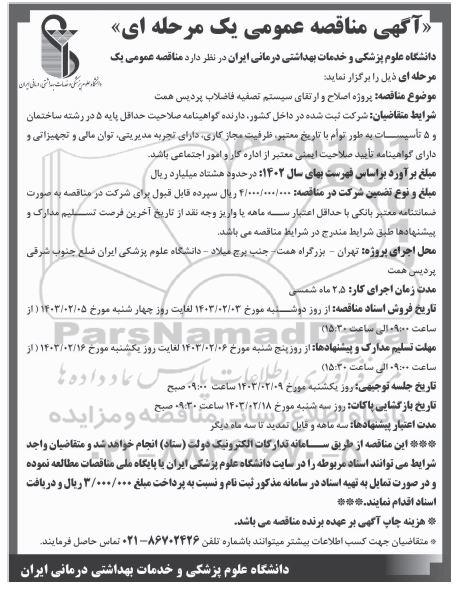 «آگهی مناقصه عمومی یک مرحله ای»
دانشگاه علوم پزشکی و خدمات بهداشتی درمانی ایران
دانشگاه علوم پزشکی و خدمات بهداشتی درمانی ایران در نظر دارد مناقصه عمومی یک
مرحله ای ذیل را برگزار نماید:
موضوع مناقصه: پروژه اصلاح و ارتقای سیستم تصفیه فاضلاب پردیس همت
شرایط متقاضیان: شرکت ثبت شده در داخل کشور، دارنده گواهینامه صلاحیت حداقل پایه ۵ در رشته ساختمان
و ۵ تأسیسات به طور توأم با تاریخ معتبر، ظرفیت مجاز کاری، دارای تجربه مدیریتی، توان مالی و تجهیزاتی و
دارای گواهینامه تأیید صلاحیت ایمنی معتبر از اداره کار و امور اجتماعی باشد.
مبلغ برآورد براساس فهرست بهای سال ۱۴۰۲: درحدود هشتاد میلیارد ریال
مبلغ و نوع تضمین شرکت در مناقصه: ۴/۰۰۰/۰۰۰/۰۰۰ ریال سپرده قابل قبول برای شرکت در مناقصه به صورت
ضمانتنامه معتبر بانکی با حداقل اعتبار سه ماهه یا واریز وجه نقد از تاریخ آخرین فرصت تسلیم مدارک و
پیشنهادها طبق شرایط مندرج در شرایط مناقصه می باشد.
محل اجرای پروژه: تهران – بزرگراه همت– جنب برج میلاد – دانشگاه علوم پزشکی ایران ضلع جنوب شرقی
پردیس همت
مدت زمان اجرای کار: ۲.۵ ماه شمسی
تاریخ فروش اسناد مناقصه: از روز دوشنبه مورخ ۱۴۰۳/۰۲/۰۳ لغایت روز چهار شنبه مورخ ۱۴۰۳/۰۲/۰۵ ( از
ساعت ۰۹:۰۰ الی ساعت ۱۵:۳۰)
مهلت تسلیم مدارک و پیشنهادها: از روز پنج شنبه مورخ ۱۴۰۳/۰۲/۰۶ لغایت روز یکشنبه مورخ ۱۴۰۳/۰۲/۱۶ ( از
ساعت ۰۹:۰۰ الی ساعت ۱۵:۳۰)
تاریخ جلسه توجیهی: روز یکشنبه مورخ ۱۴۰۳/۰۲/۰۹ ساعت ۰۹:۰۰ صبح
تاریخ بازگشایی پاکات: روز سه شنبه مورخ ۱۴۰۳/۰۲/۱۸ ساعت ۰۹:۳۰ صبح
مدت اعتبار پیشنهادها: سه ماهه و قابل تمدید تا سه ماه دیگر
*** این مناقصه از طریق سامانه تدارکات الکترونیک دولت (ستاد) انجام خواهد شد و متقاضیان واجد
شرایط می توانند اسناد مربوطه را در سایت دانشگاه علوم پزشکی ایران یا پایگاه ملی مناقصات مطالعه نموده
و در صورت تمایل به تهیه اسناد در سامانه مذکور ثبت نام و نسبت به پرداخت مبلغ ۳/۰۰۰/۰۰۰ ریال و دریافت
اسناد اقدام نمایند.***
* هزینه چاپ آگهی بر عهده برنده مناقصه می باشد.
* متقاضیان جهت کسب اطلاعات بیشتر میتوانند باشماره تلفن ۸۶۷۰۲۴۲۶–۰۲۱ تماس حاصل فرمایند.
دانشگاه علوم پزشکی و خدمات بهداشتی درمانی ایران
ParsNamadData